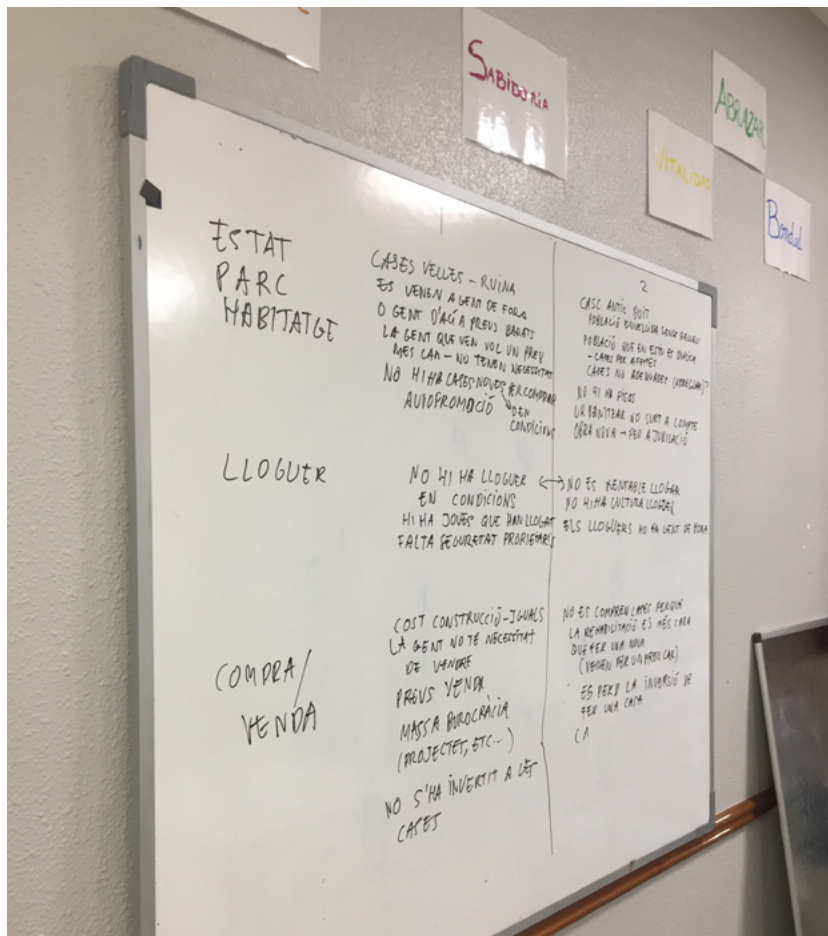 SABIDORIA
ABRAZAR
VITALIDAD
Bondad
ESTAT
PARC
HABITATGE
1
CASES VELLES - RUINA
ES VENEN A GENT DE FORA
O GENT D'ACÍ A PREUS BARATS
LA GENT QUE VEN VOL UN PREU
MES CAR - NO TENEN NECESSITAT
NO HI HA CASES NOVES PER COMPRAR
AUTOPROMOCIÓ
EN
CONDICIONS
2
CASC ANTIC BUIT
POBLACIÓ ENVELLIDA SENSE RELLEU
POBLACIÓ QUE EN ESTIU ES DUPLICA
CASES NO ADEQUADES (ARREGLAR)?
NO HI HA PISOS
URBANITZAR NO SURT A COMPTE
OBRA NOVA → PER A JUBILACIÓ
LLOGUER
NO HI HA LLOGUER
EN CONDICIONS
HI HA JOVES QUE HAN LLOGAT
FALTA SEGURETAT PROPIETARIS
NO ES RENTABLE LLOGAR
NO HI HA CULTURA LLOGUER
ELS LLOGUERS HO FA GENT DE FORA
COMPRA/
VENDA
COST CONSTRUCCIÓ - IGUALS
LA GENT NO TÉ NECESSITAT
DE VENDRE
PREUS VENDA
MASSA BUROCRÀCIA
(PROJECTET, ETC...)
NO S'HA INVERTIT A LES
CASES
NO ES COMPREN CASES PERQUÈ
LA REHABILITACIÓ ES MÉS CARA
QUE FER UNA NOVA
(VENEN PER UN PREU CAR)
ES PERD LA INVERSIÓ DE
FER UNA CASA